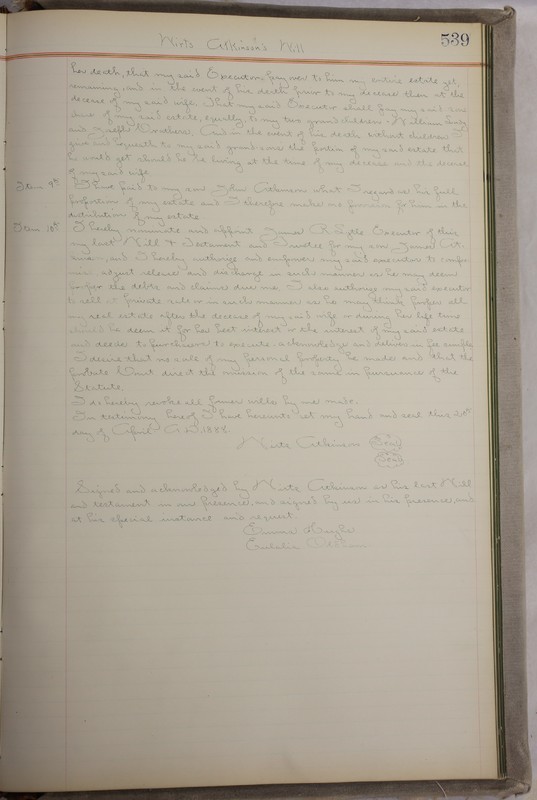 539
Wirts Atkinson's Will
her death, that my said Executor pay over to him my entire estate yet
remaining, and in the event of his death prior to my decease then at the
decease of my said wife. That my said Executor shall pay my said
of my said estate, equally, to my two grandchildren, William
and Brothers. And in the event of his death without children I
give and bequeath to my said grand sons the portion of my said estate that
he would get should he be living at the time of my decease and the decease
of my said wife.
Item 9th I have paid to my son John Atkinson what I regard as his full
proportion of my estate and I therefore make no provision for him in the
distribution of my estate
Item 10th I hereby nominate and appoint James R. Executor of this
my last Will & Testament and Trustee for my son James At-
kinson, and I hereby authorize and empower my said executor to compro-
mise adjust release and discharge in such manner as he may deem
proper the debts and claims due me. I also authorize my said executor
to sell at private sale or in such manner as he may think proper all
my real estate after the decease of my said wife or during her life time
should he deem it for her best interest or the interest of my said estate
and deeds to purchasers to execute, acknowledge and deliver in fee simple
I desire that no sale of my personal property be made and that the
probate Court direct the omission of the same in pursuance of the
Statute.
I do hereby revoke all former wills by me made.
In testimony hereof I have hereunto set my hand and seal this 20th
day of April A.D. 1888.
Wirts Atkinson Seal
Seal
Signed and acknowledged by Wirts Atkinson as his last Will
and testament in our presence, and signed by us in his presence, and
at his special instance and request
Emma